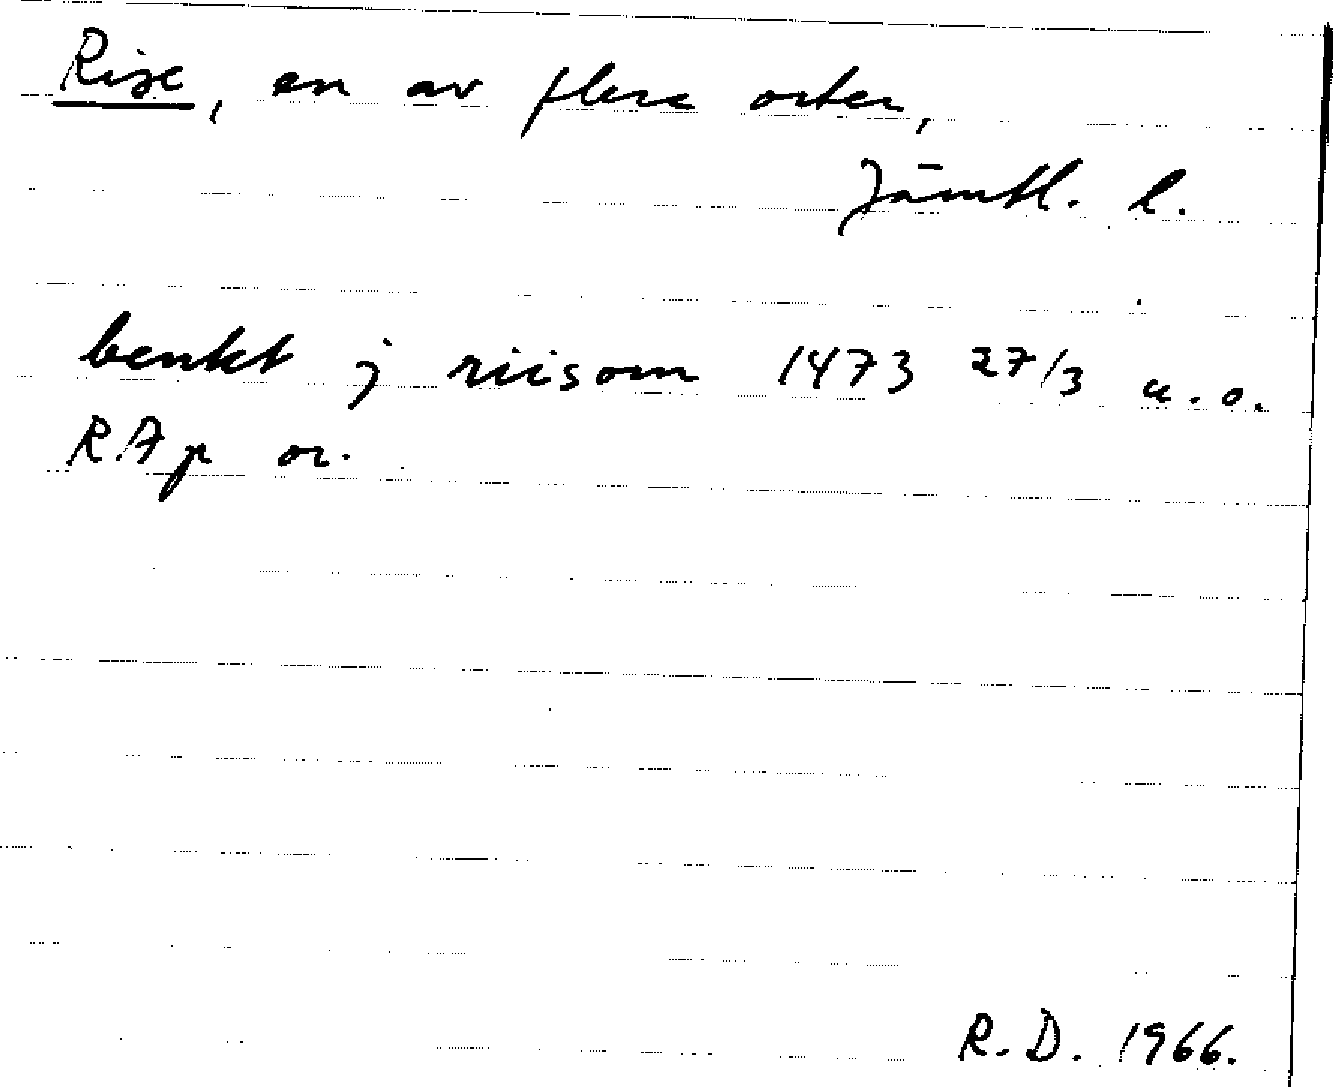 Rise, en av flera orter,
Jämtl. l.
benkt j riisom 1473 27/3 u.o.
RAp or.
R.D. 1966.